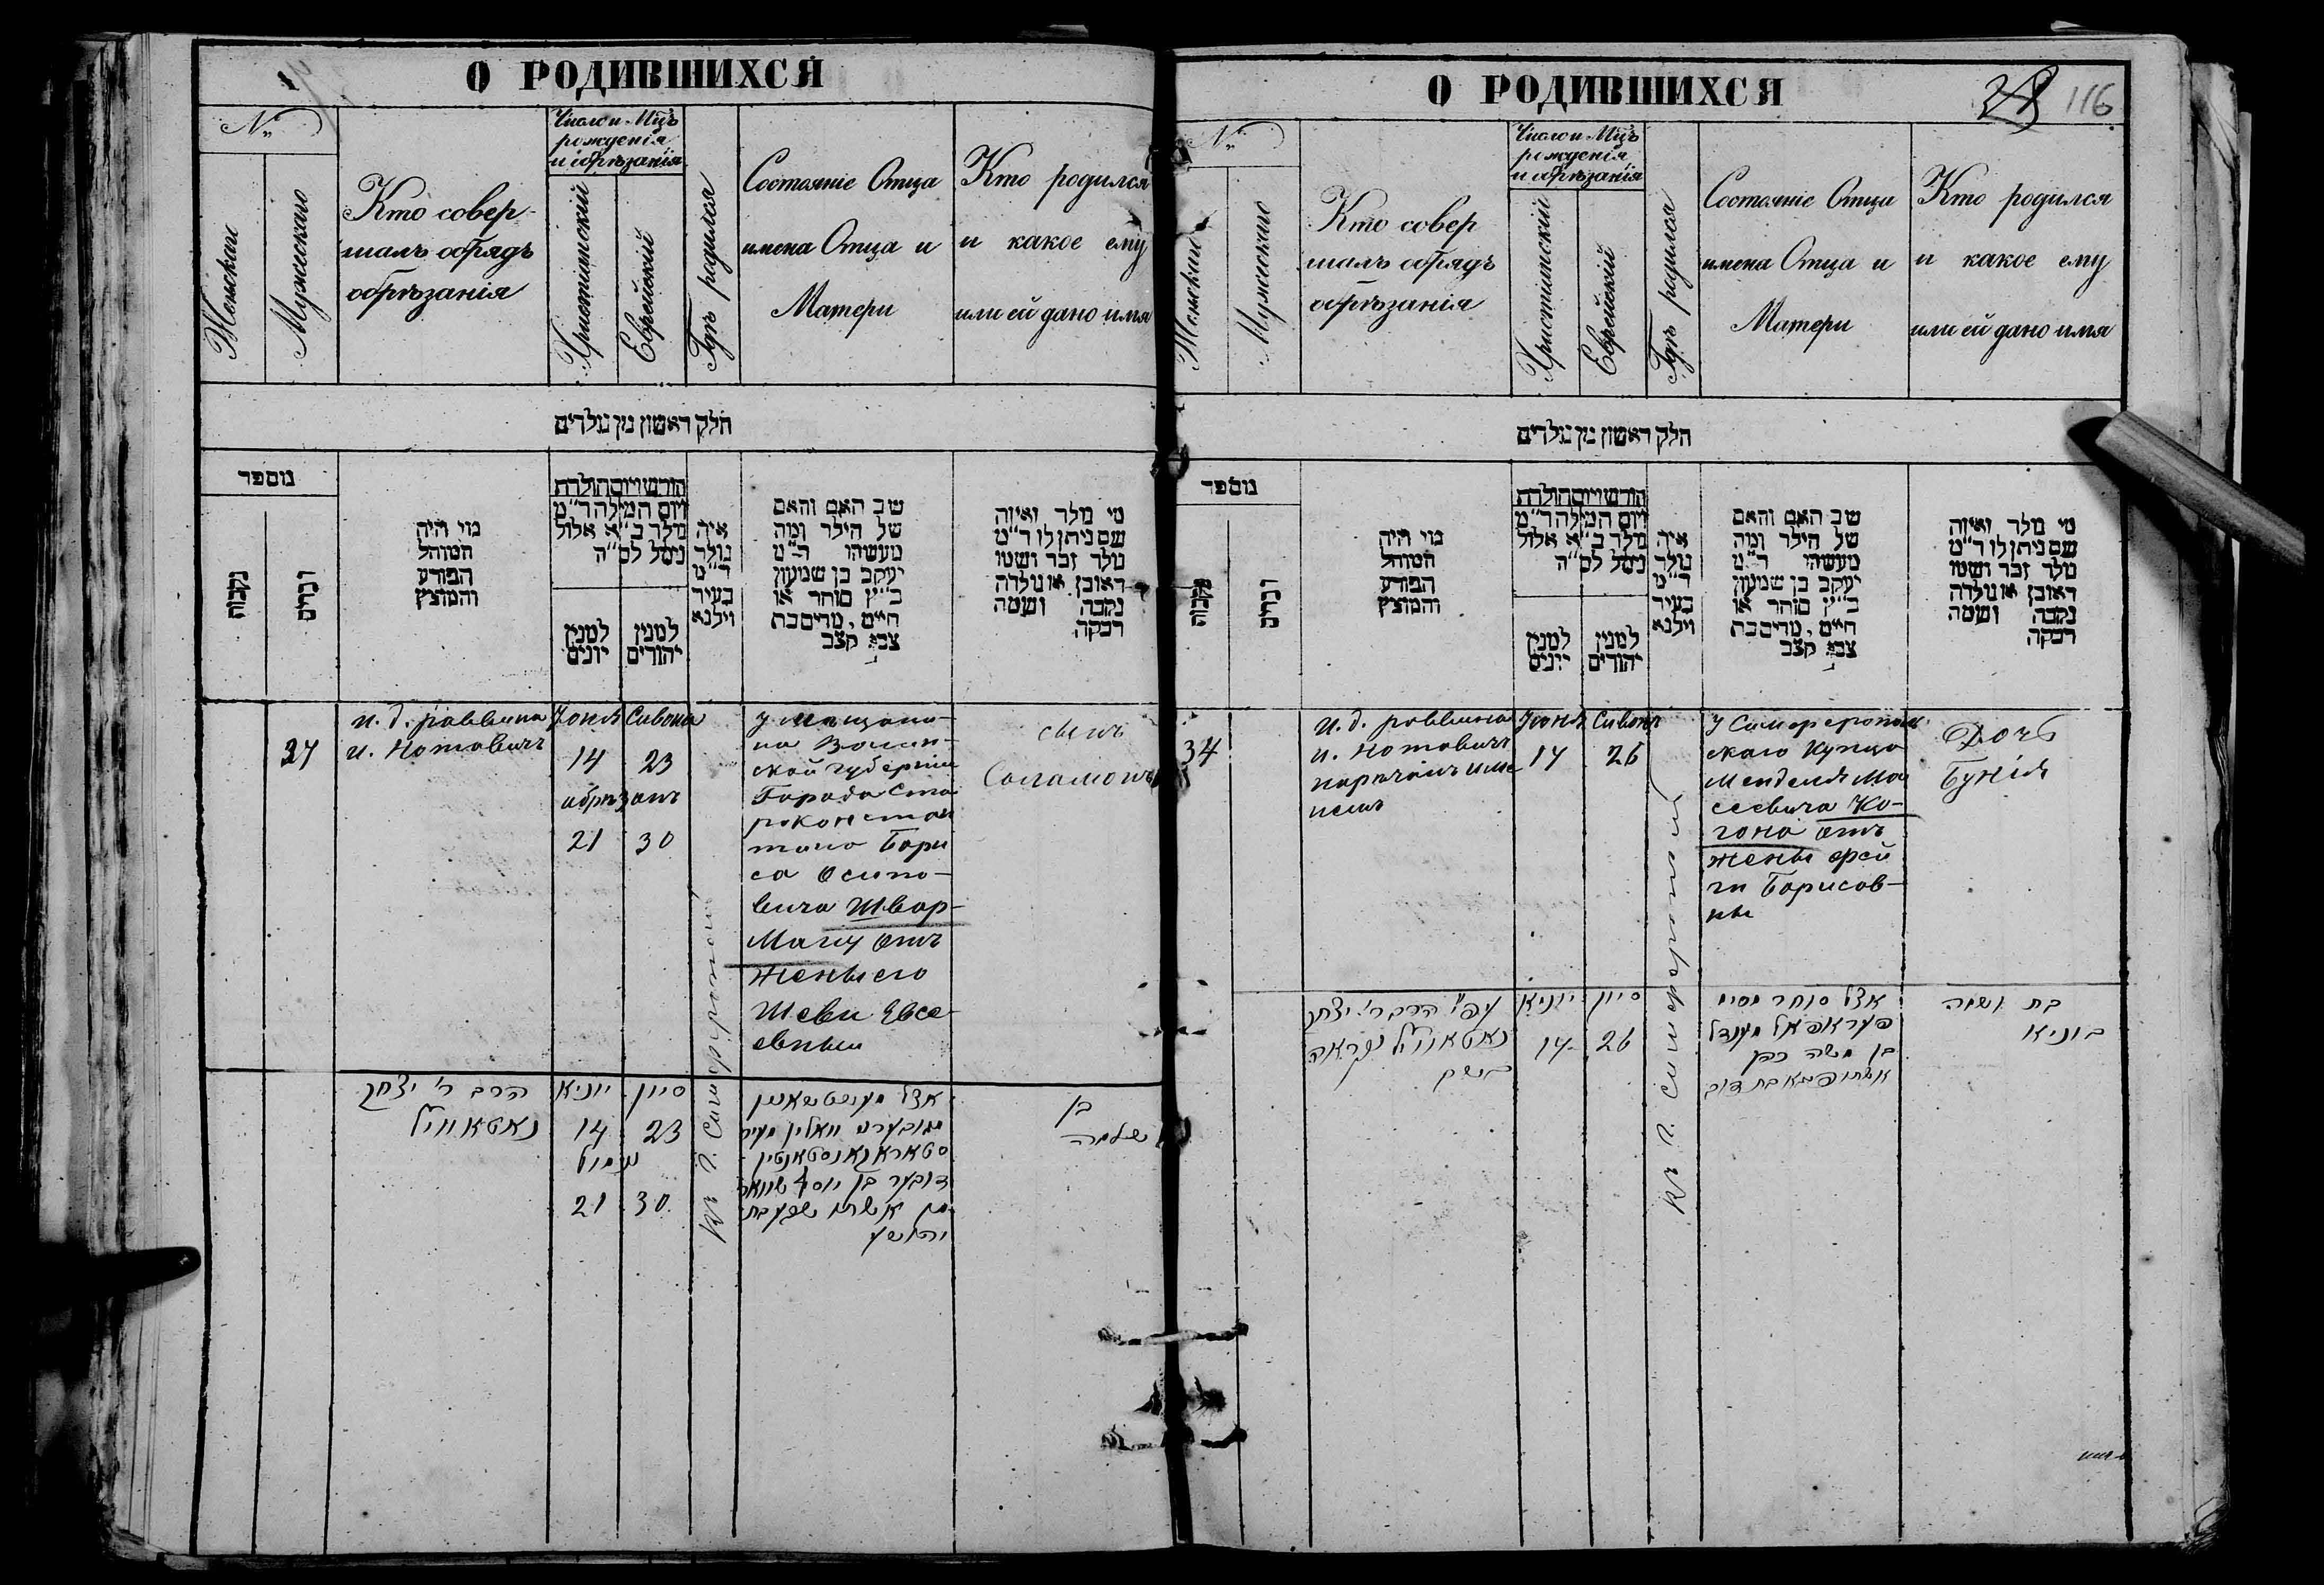 О РОДИВШИХСЯ
№
Женскаго
Мужескаго
Кто совер-
шалъ обрядъ
обрѣзанія
Число и Мцъ
рожденія
и обрѣзанія
Христіанскій
Еврейскій
Гдѣ родился
Состояніе Отца
имена Отца и
Матери
Кто родился
и какое ему
или ей дано имя
חלק ראשון מן נולדים
מספר
נקבות
זכרים
מי היה
המוהל
הפורע
והמוצץ
חודש ויום הולדת
ויום המילה ד"מ
נולד כ"א אלול
נימל לס"ה
למנין
יונים
למנין
יהודים
איה
נולד
ד"מ
בעיר
ווילנא
שב האם והאם
של הילד ומה
מעשהו ד"מ
יעקב בן שמעון
כ"ץ סוחר או
חייט, מרים בת
צבי קצב
מי נולד ואיזה
שם ניתן לו ד"מ
נולד זכר ושמו
ראובן או נולדה
נקבה ושמה
רבקה
37
и. д. раввина
И. Нотовичъ
Іюня
14
обрѣзанъ
21
Сивона
23
30
въ г. Симферополѣ
У мѣщани-
на Волын-
ской губерніи
Города Ста
роконстан
тина Бори
са Осипо-
вича Швар-
Ману отъ
жены его
Шеви Евсе-
евны
сынъ
Соломонъ
הרב ר' יצחק
נאטאוויץ
יוניא
14
נימול
21
סיון
23
30
אצל מעשטשאנין
גובערני וואלין מעיר
סטאראקאנסטאנטין
דובער בן יוסף שווארץ
מן אשתו שבע בת
יהושע
בן
שלמה
О РОДИВШИХСЯ
28 116
№
Женскаго
Мужескаго
Кто совер
шалъ обрядъ
обрѣзанія
Число и Мцъ
рожденія
и обрѣзанія
Христіанскій
Еврейскій
Гдѣ родился
Состояніе Отца
имена Отца и
Матери
Кто родился
и какое ему
или ей дано имя
חלק ראשון מן נולדים
מספר
נקבות
זכרים
מי היה
המוהל
הפורע
והמוצץ
חודש ויום הולדת
ויום המילה ד"מ
נולד כ"א אלול
נימל לס"ה
למנין
יונים
למנין
יהודים
איה
נולד
ד"מ
בעיר
ווילנא
שב האם והאם
של הילד ומה
מעשהו ד"מ
יעקב בן שמעון
כ"ץ סוחר או
חייט, מרים בת
צבי קצב
מי נולד ואיזה
שם ניתן לו ד"מ
נולד זכר ושמו
ראובן או נולדה
נקבה ושמה
רבקה
34
и. д. раввина
И. Нотовичъ
нареченъ име
немъ
Іюня
17
Сивона
26
въ г. Симферополѣ
У Симферополь
скаго Купца
Менделя Мо
сеевича Ко-
гона отъ
жены Фей
ги Борисов-
ны
Дочь
Бунія
עפ"י הרב ר' יצחק
נאטאוויץ נקראה
בשם
יוניא
17
סיון
26
אצל סוחר סימ
פעראפאל מענדל
בן משה כהן
בת דוב
בת ושמה
בוניא